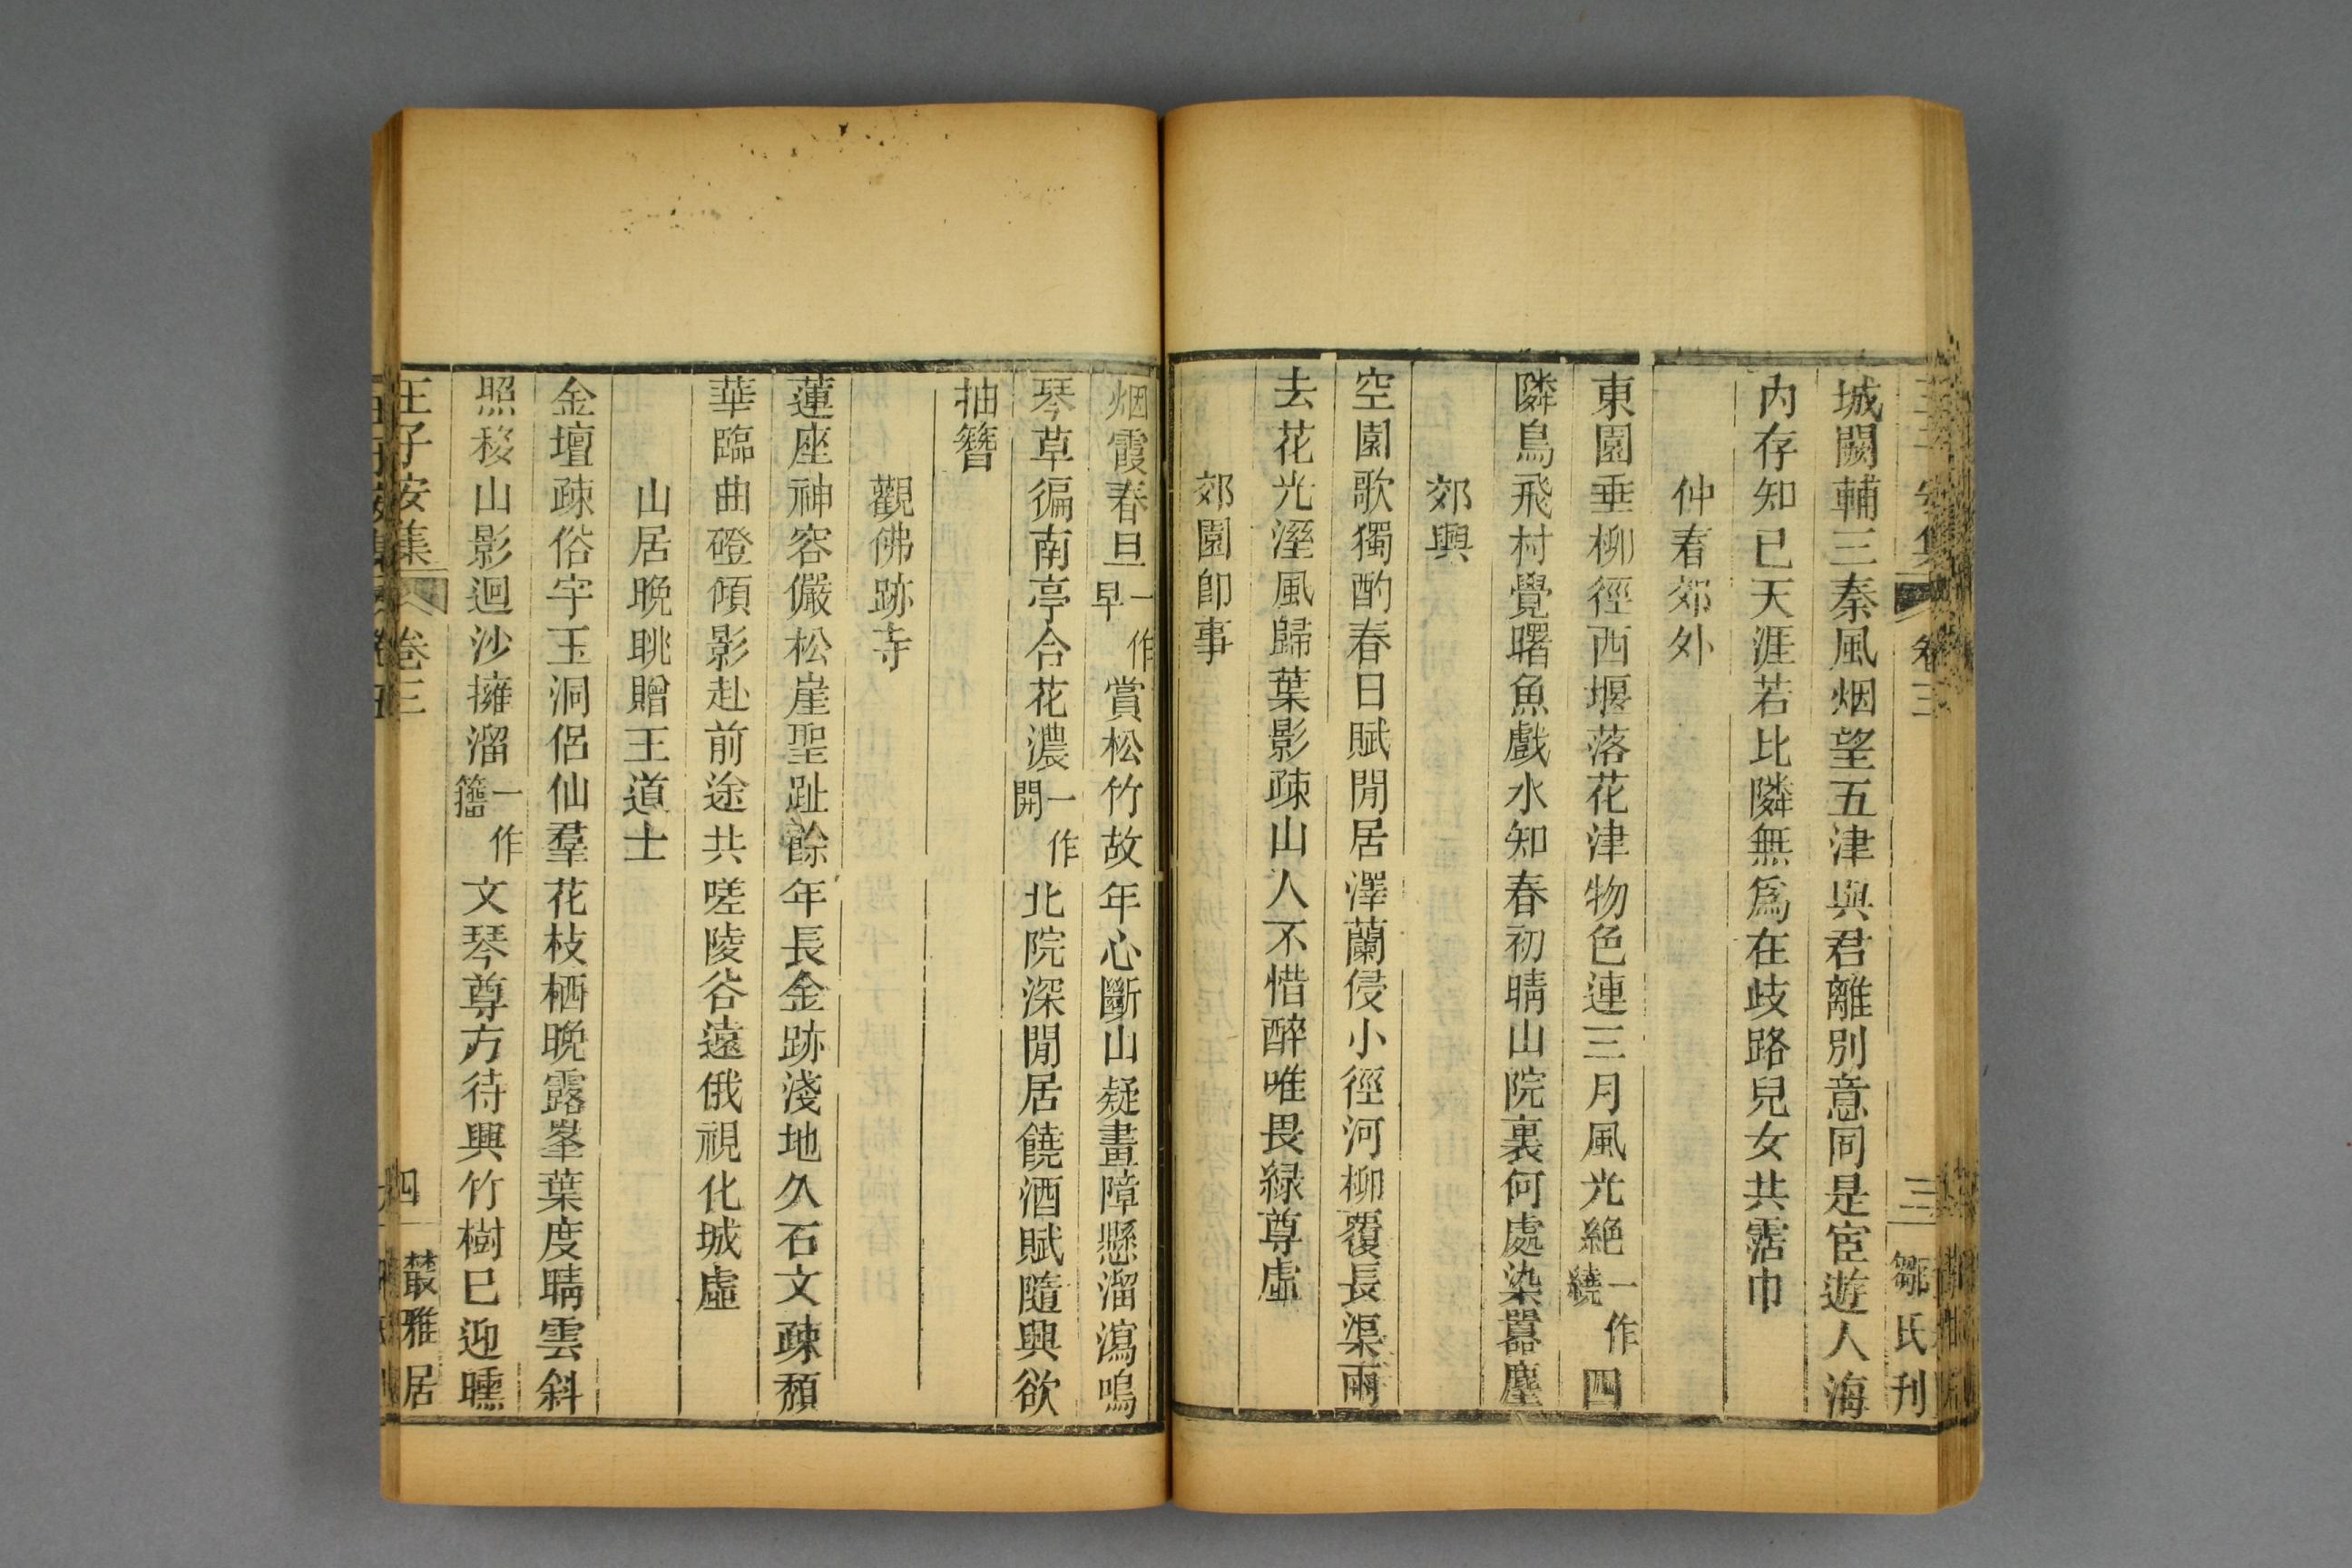 王子安集 卷三 三 鄒氏刊
城闕輔三秦風烟望五津與君離別意同是宦遊人海
内存知已天涯若比隣無爲在歧路兒女共霑巾
仲春郊外
東園垂柳徑西堰落花津物色連三月風光絶一作繞四
隣鳥飛村覺曙魚戲水知春初晴山院裏何處染囂塵
郊興
空園歌獨酌春日賦閒居澤蘭侵小徑河柳覆長渠雨
去花光溼風歸葉影疎山人不惜醉唯畏緑尊虛
郊園卽事
烟霞春旦一作早賞松竹故年心斷山疑畫障懸溜瀉鳴
琴草徧南亭合花濃一作開北院深閒居饒酒賦隨興欲
抽簪
觀佛跡寺
蓮座神容儼松崖聖趾餘年長金跡淺地久石文疎頹
華臨曲磴傾影赴前途共嗟陵谷遠俄視化城虛
山居晩眺贈王道士
金壇疎俗宇玉洞侶仙羣花枝栖晩露峯葉度晴雲斜
照移山影迴沙擁溜一作籀文琴尊方待興竹樹已迎曛
王子安集 卷三 四 叢雅居